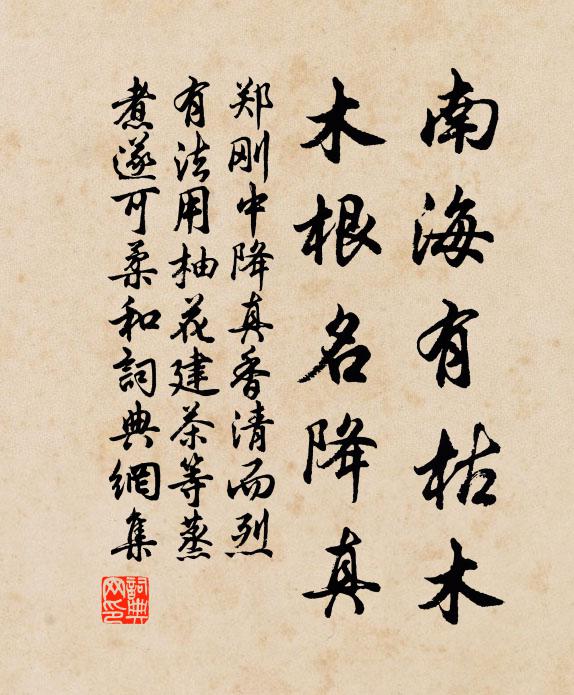 南海有枯木
木根名降真
郑刚中降真香清而烈
有法用柚花建茶等蒸
煮遂可柔和詞典網集
詞典
网印